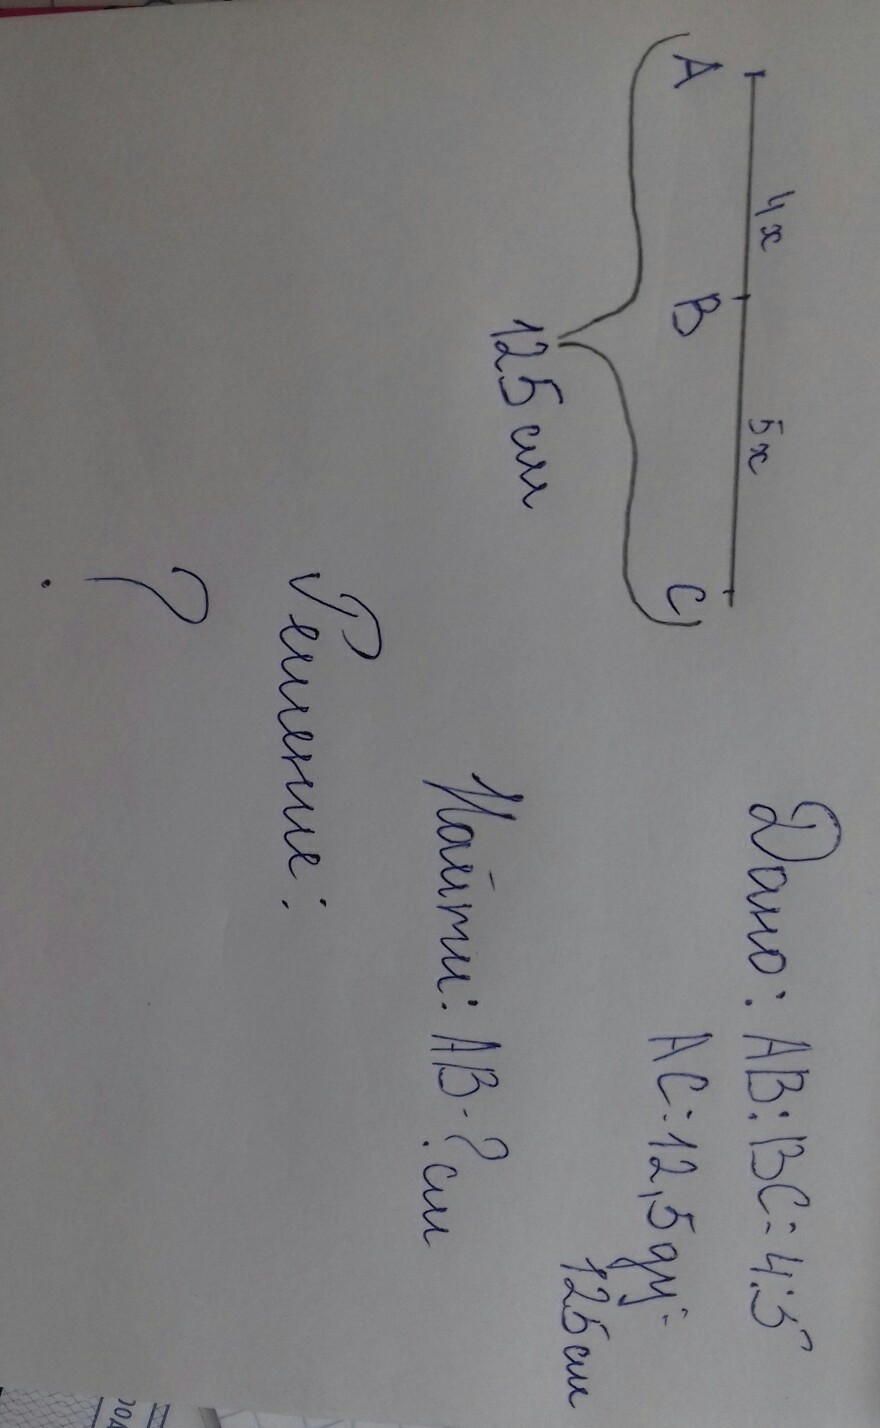 4x 5x
A B C
125 см
Дано: AB:BC=4:5
AC=12,5 ду=
125 см
Найти: AB-? см
Решение:
?